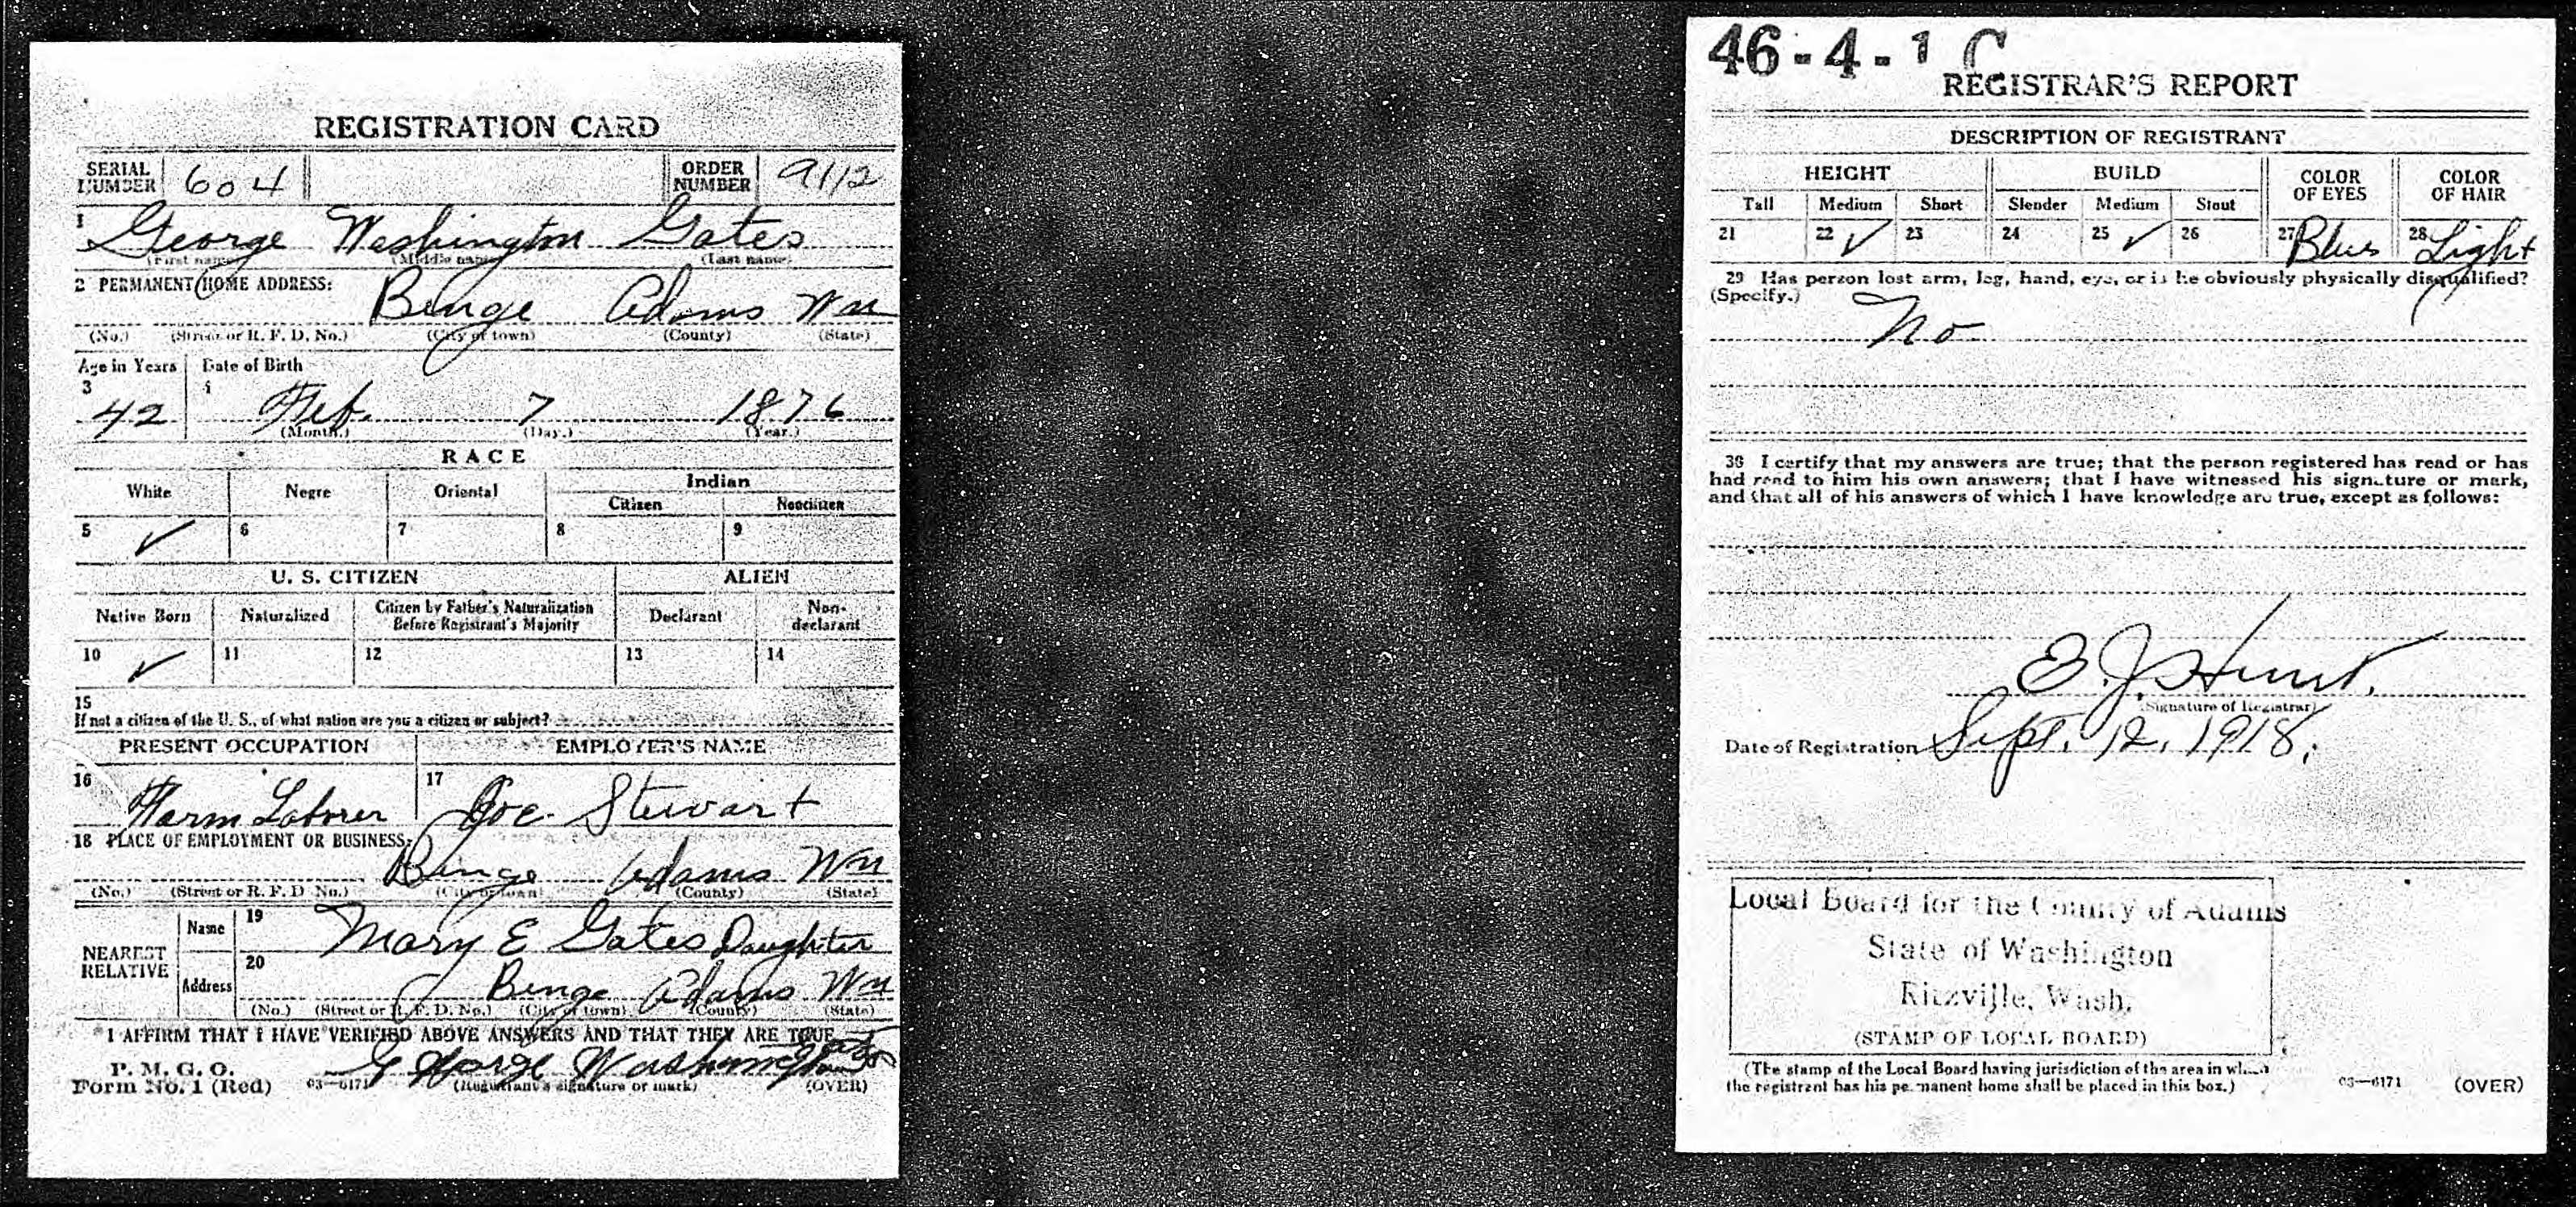 REGISTRATION CARD
SERIAL NUMBER 604 ORDER NUMBER 9112
1 George Washington Gates
(First name) (Middle name) (Last name)
2 PERMANENT HOME ADDRESS:
Benge Adams Wn
(No.) (Street or R. F. D. No.) (City or town) (County) (State)
Age in Years Date of Birth
3 4
42 Feb. 7 1876
(Month.) (Day.) (Year.)
RACE
White Negro Oriental Indian
Citizen Noncitizen
5 ✓ 6 7 8 9
U. S. CITIZEN ALIEN
Native Born Naturalized Citizen by Father's Naturalization Before Registrant's Majority Declarant Non-declarant
10 ✓ 11 12 13 14
15
If not a citizen of the U. S., of what nation are you a citizen or subject?
PRESENT OCCUPATION EMPLOYER'S NAME
16 Farm Laborer 17 Joe. Stewart
18 PLACE OF EMPLOYMENT OR BUSINESS:
Benge Adams Wn
(No.) (Street or R. F. D. No.) (City or town) (County) (State)
NEAREST RELATIVE
Name 19 Mary E Gates Daughter
Address 20 Benge Adams Wn
(No.) (Street or R. F. D. No.) (City or town) (County) (State)
I AFFIRM THAT I HAVE VERIFIED ABOVE ANSWERS AND THAT THEY ARE TRUE
P. M. G. O.
Form No. 1 (Red) 03—6171 George Washington Gates
(Registrant's signature or mark) (OVER)
46-4-1 C
REGISTRAR'S REPORT
DESCRIPTION OF REGISTRANT
HEIGHT BUILD COLOR OF EYES COLOR OF HAIR
Tall Medium Short Slender Medium Stout
21 22 ✓ 23 24 25 ✓ 26 27 Blue 28 Light
29 Has person lost arm, leg, hand, eye, or is he obviously physically disqualified?
(Specify.)
No
30 I certify that my answers are true; that the person registered has read or has
had read to him his own answers; that I have witnessed his signature or mark,
and that all of his answers of which I have knowledge are true, except as follows:
E. J. Hunt.
(Signature of Registrar)
Date of Registration Sept. 12, 1918.
Local Board for the County of Adams
State of Washington
Ritzville, Wash.
(STAMP OF LOCAL BOARD)
(The stamp of the Local Board having jurisdiction of the area in which
the registrant has his permanent home shall be placed in this box.)
03—6171 (OVER)